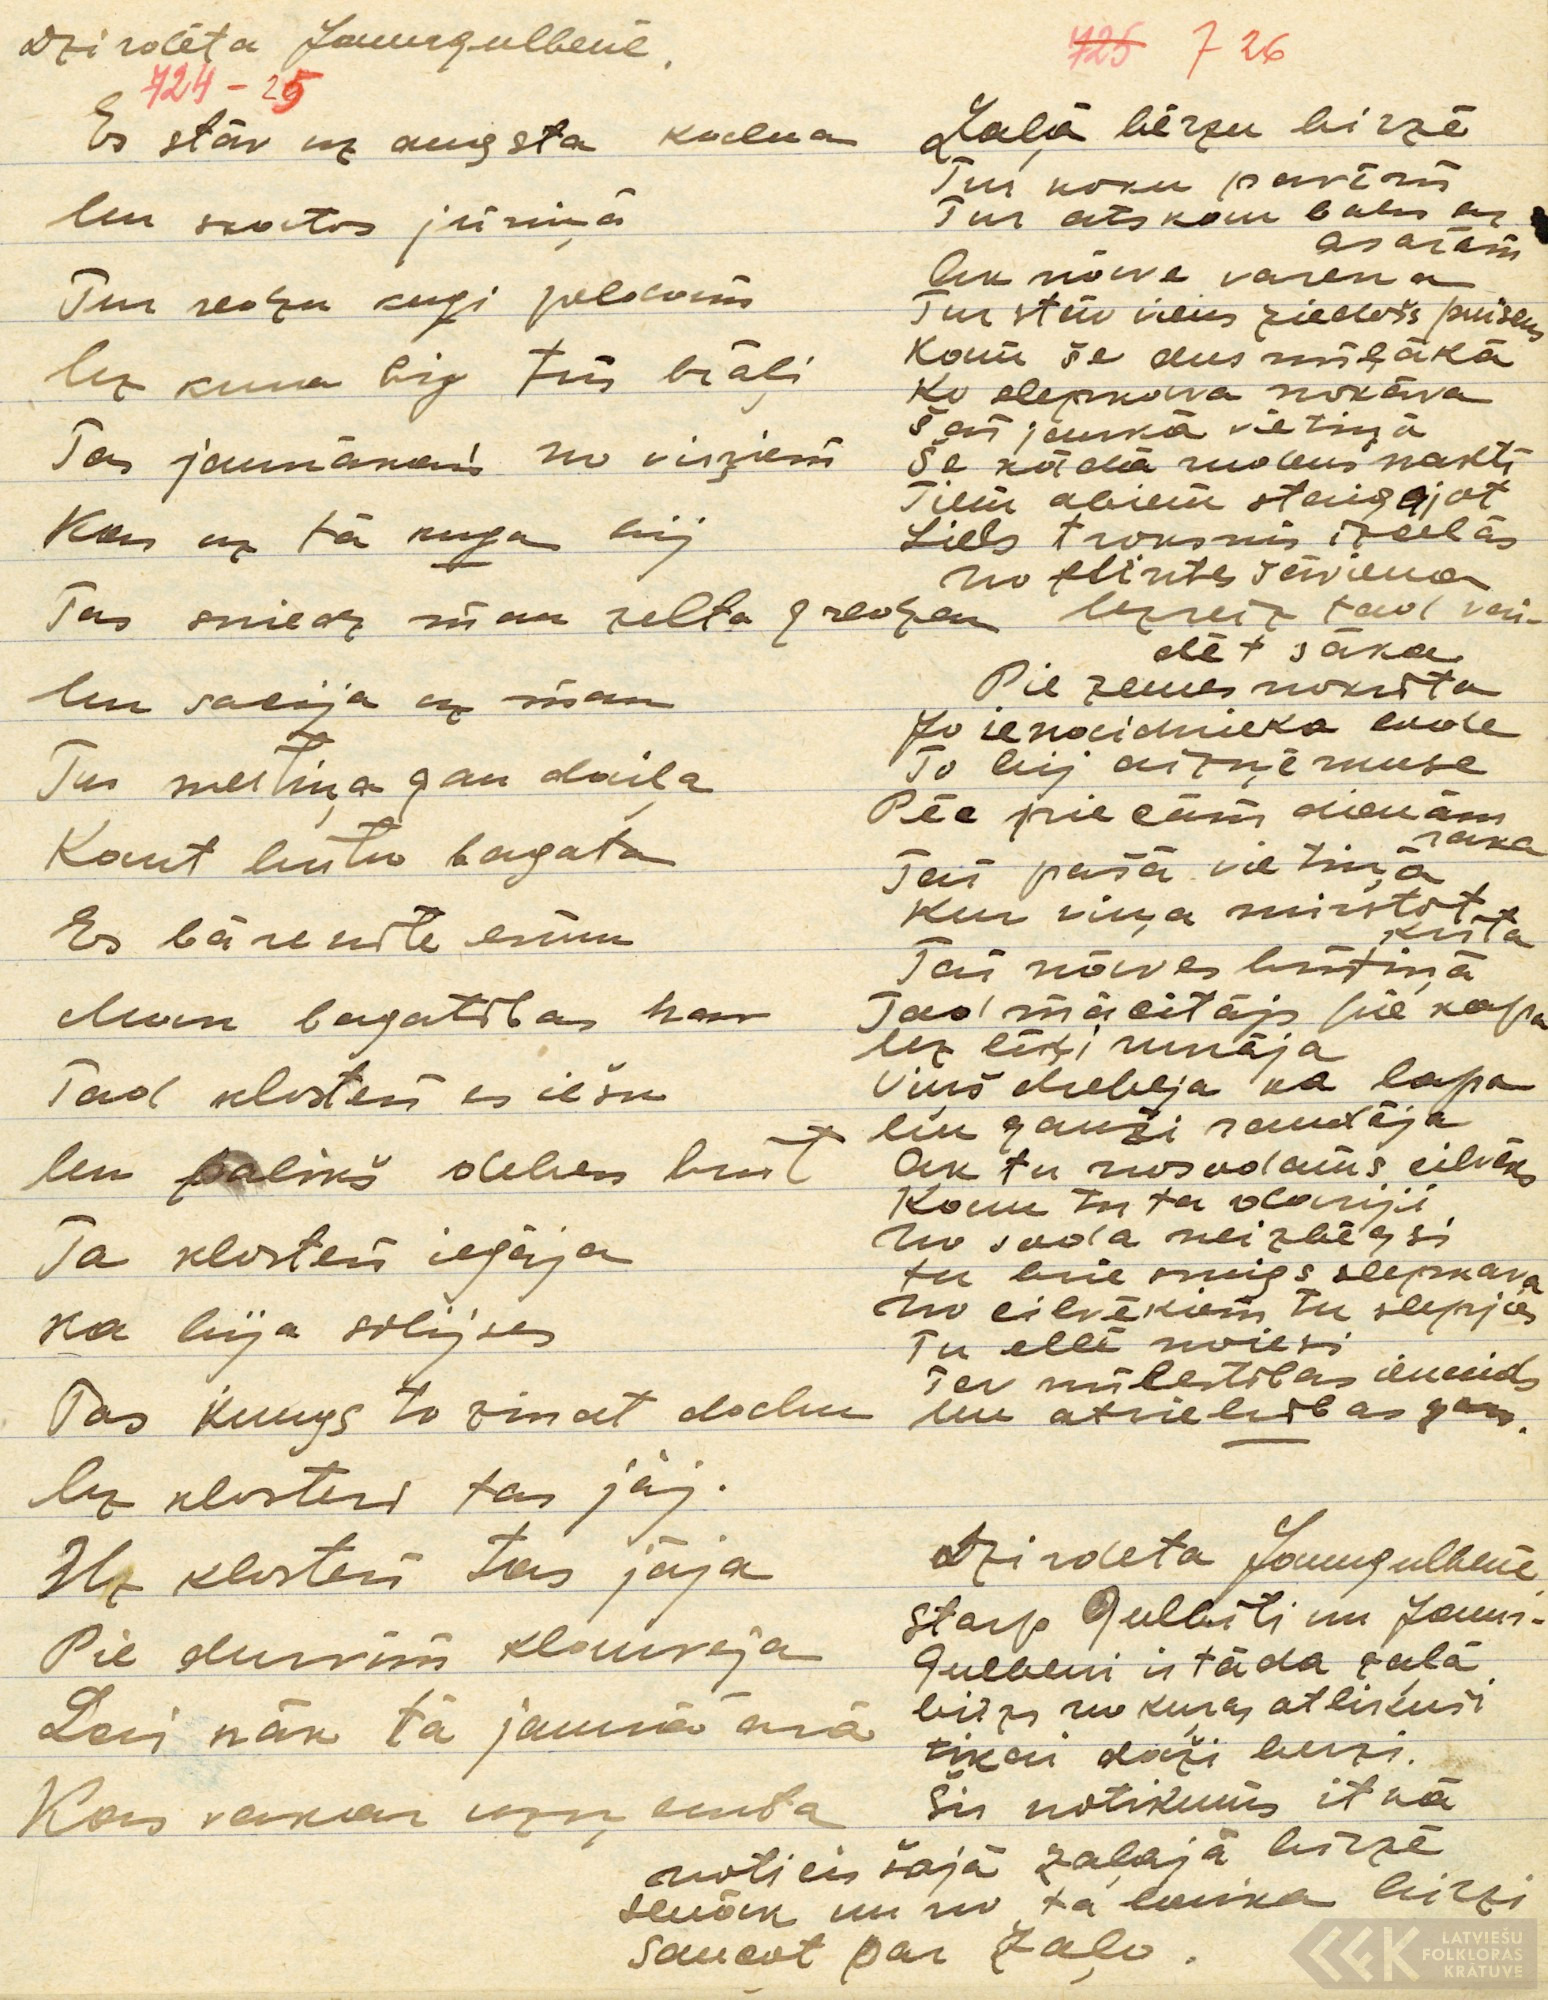 Dzirdēta Jaungulbenē.
724 - 25
Es stāv uz augsta kalna
Un skatos jūriņā
Tur redzu kuģi peldam
Uz kura bij trīs brāļi
Tas jaunākais no viņiem
Kas uz tā kuģa bij
Tas sniedz man zelta gredzen
Un sacija uz man
Tur meitiņa gan daiļa
Kaut būtu bagata
Es bārenīte esmu
Man bagatības nav
Tad klosterī es iešu
Un palikš debes brūt
Ta klosterī iegāja
ka bija solijses
Tas kungs to zinat dabu
Uz klosteri tas jāj.
Uz klosteri tas jāja
Pie durvīm klauveja
Lai nāk tā jaunā ārā
Kas vakar uzņemta
725 726
Zaļā bērzu birzē
Tur koku pavēnī
Tur atskan balss ar
asarām
Ak nāve varena
Tur stāv viens ziedošs puisens
Kam še dus mīļākā
Ko slepkava nokāva
Šai jaukā vietiņā
Še kādā rudens naktī
Tiem abiem staigājot
Liels troksnis izcelās
no plintes šāviena
Uzreiz tad vai-
dēt sāka
Pie zemes nokrita
Jo ienaidnieka lode
To bij aizņēmuse
Pēc piecām dienām
raka
Tai pašā vietiņā
Kur viņa mirstot
krita
Tai nāves brītiņā
Tad mācitājs pie kapa
Uz līķi runāja
Viņš drebeja ka lapa
Un gauži raudāja
Ak tu nosodams cilvēks
Kam tu ta dariji
No soda neizbēgsi
tu briesmigs slepkava
No cilvēkiem tu slepjās
Tu ellē noiesi
Tev mīlestības ienaids
Un atriebības gars.
Dzirdeta Jaungulbenē.
Starp Gulbīti un Jaun-
Gulbeni ir tāda zaļā
birzs no kuras atlikuši
tikai daži berzi.
Šis notikums it kā
noticis šajā zaļajā birzē
senāk un no tā laika birzi
saucot par Zaļo.
LATVIEŠU
FOLKLORAS
KRĀTUVE